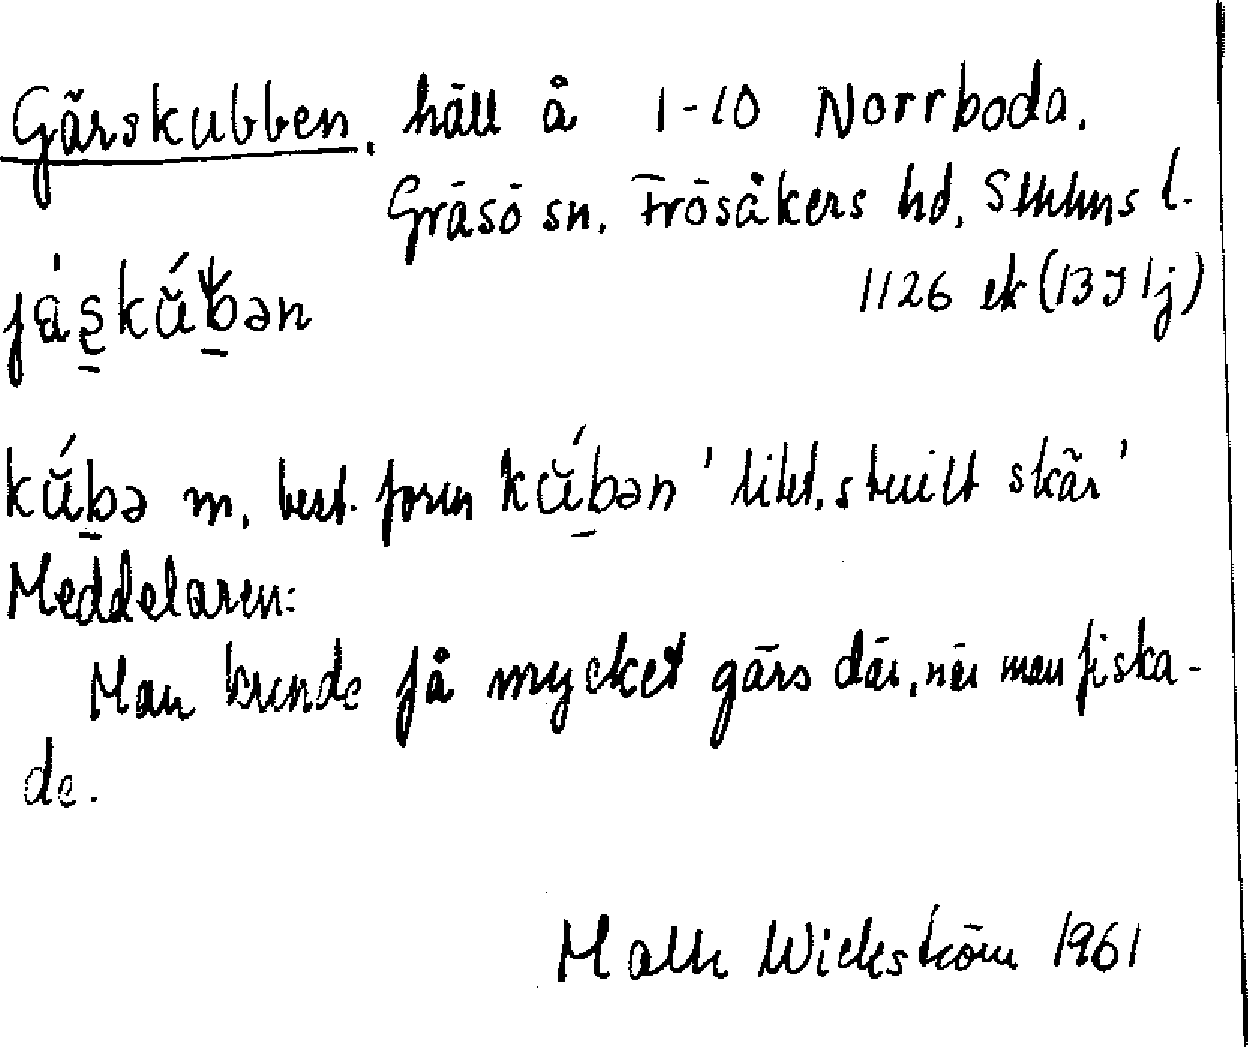 Gärskubben, häll å 1-10 Norrboda.
Gräsö sn. Frösåkers hd, Sthlms l.
1126 ek (13I 1j)
kŭ́bə m. best. form kŭ́bən 'litet, smält skär'
Meddelaren:
Man kunde få mycket gärs där, när man fiska-
de.
Wickström 1961